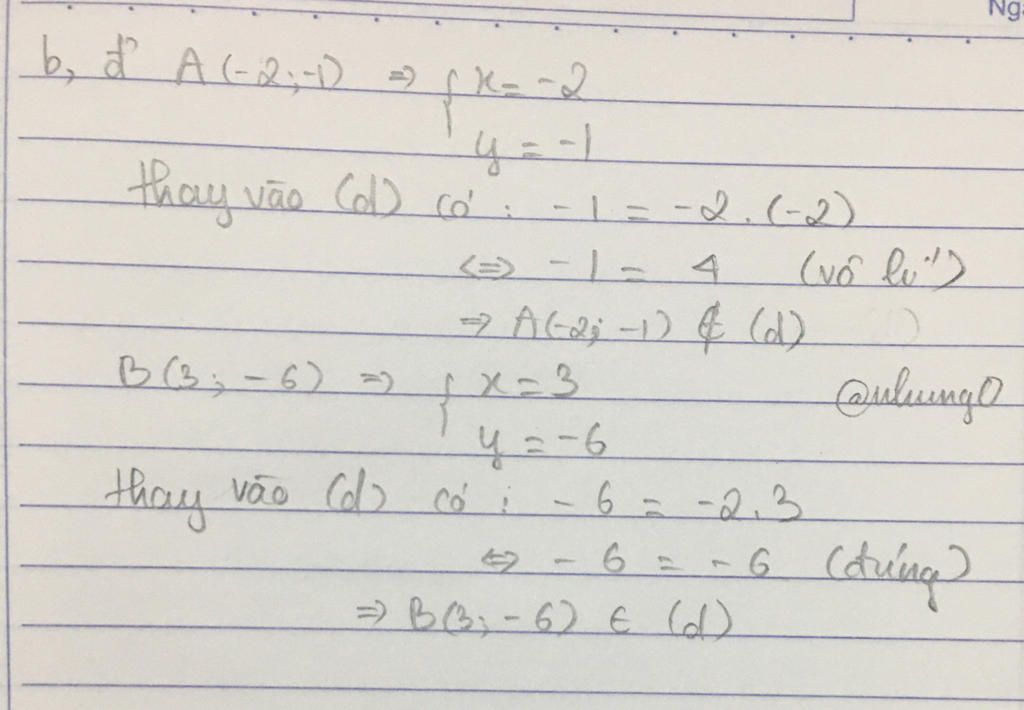 Ng
b, đ' A(-2;-1) => { x = -2
y = -1
thay vào (d) có : -1 = -2.(-2)
<=> -1 = 4 (vô lý)
=> A(-2; -1) ∉ (d)
B(3; -6) => { x = 3
@nhung0
y = -6
thay vào (d) có : -6 = -2.3
<=> -6 = -6 (đúng)
=> B(3; -6) ∈ (d)